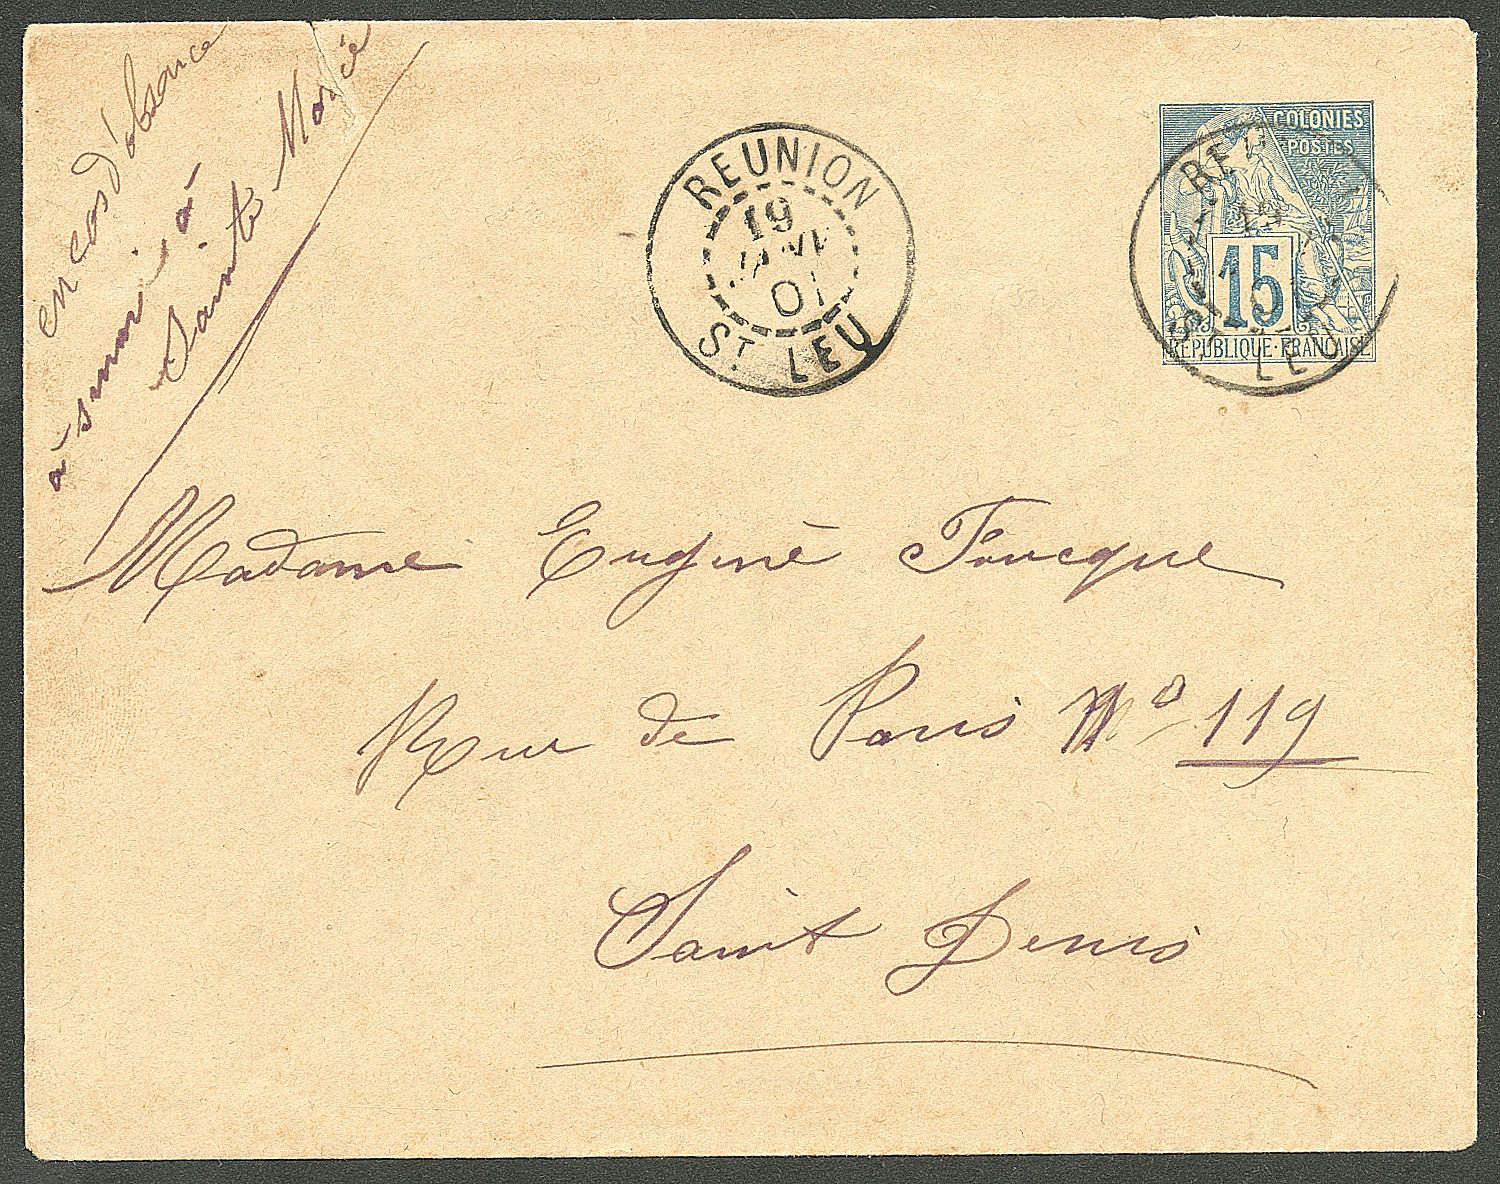 en cas d'absence
à suivre à
Sainte Marie
REUNION
19
JANV
01
ST LEU
COLONIES
POSTES
15
REPUBLIQUE·FRANCAISE
RE
19
ST LEU
Madame Eugène Foucque
Rue de Paris No 119
Saint Denis